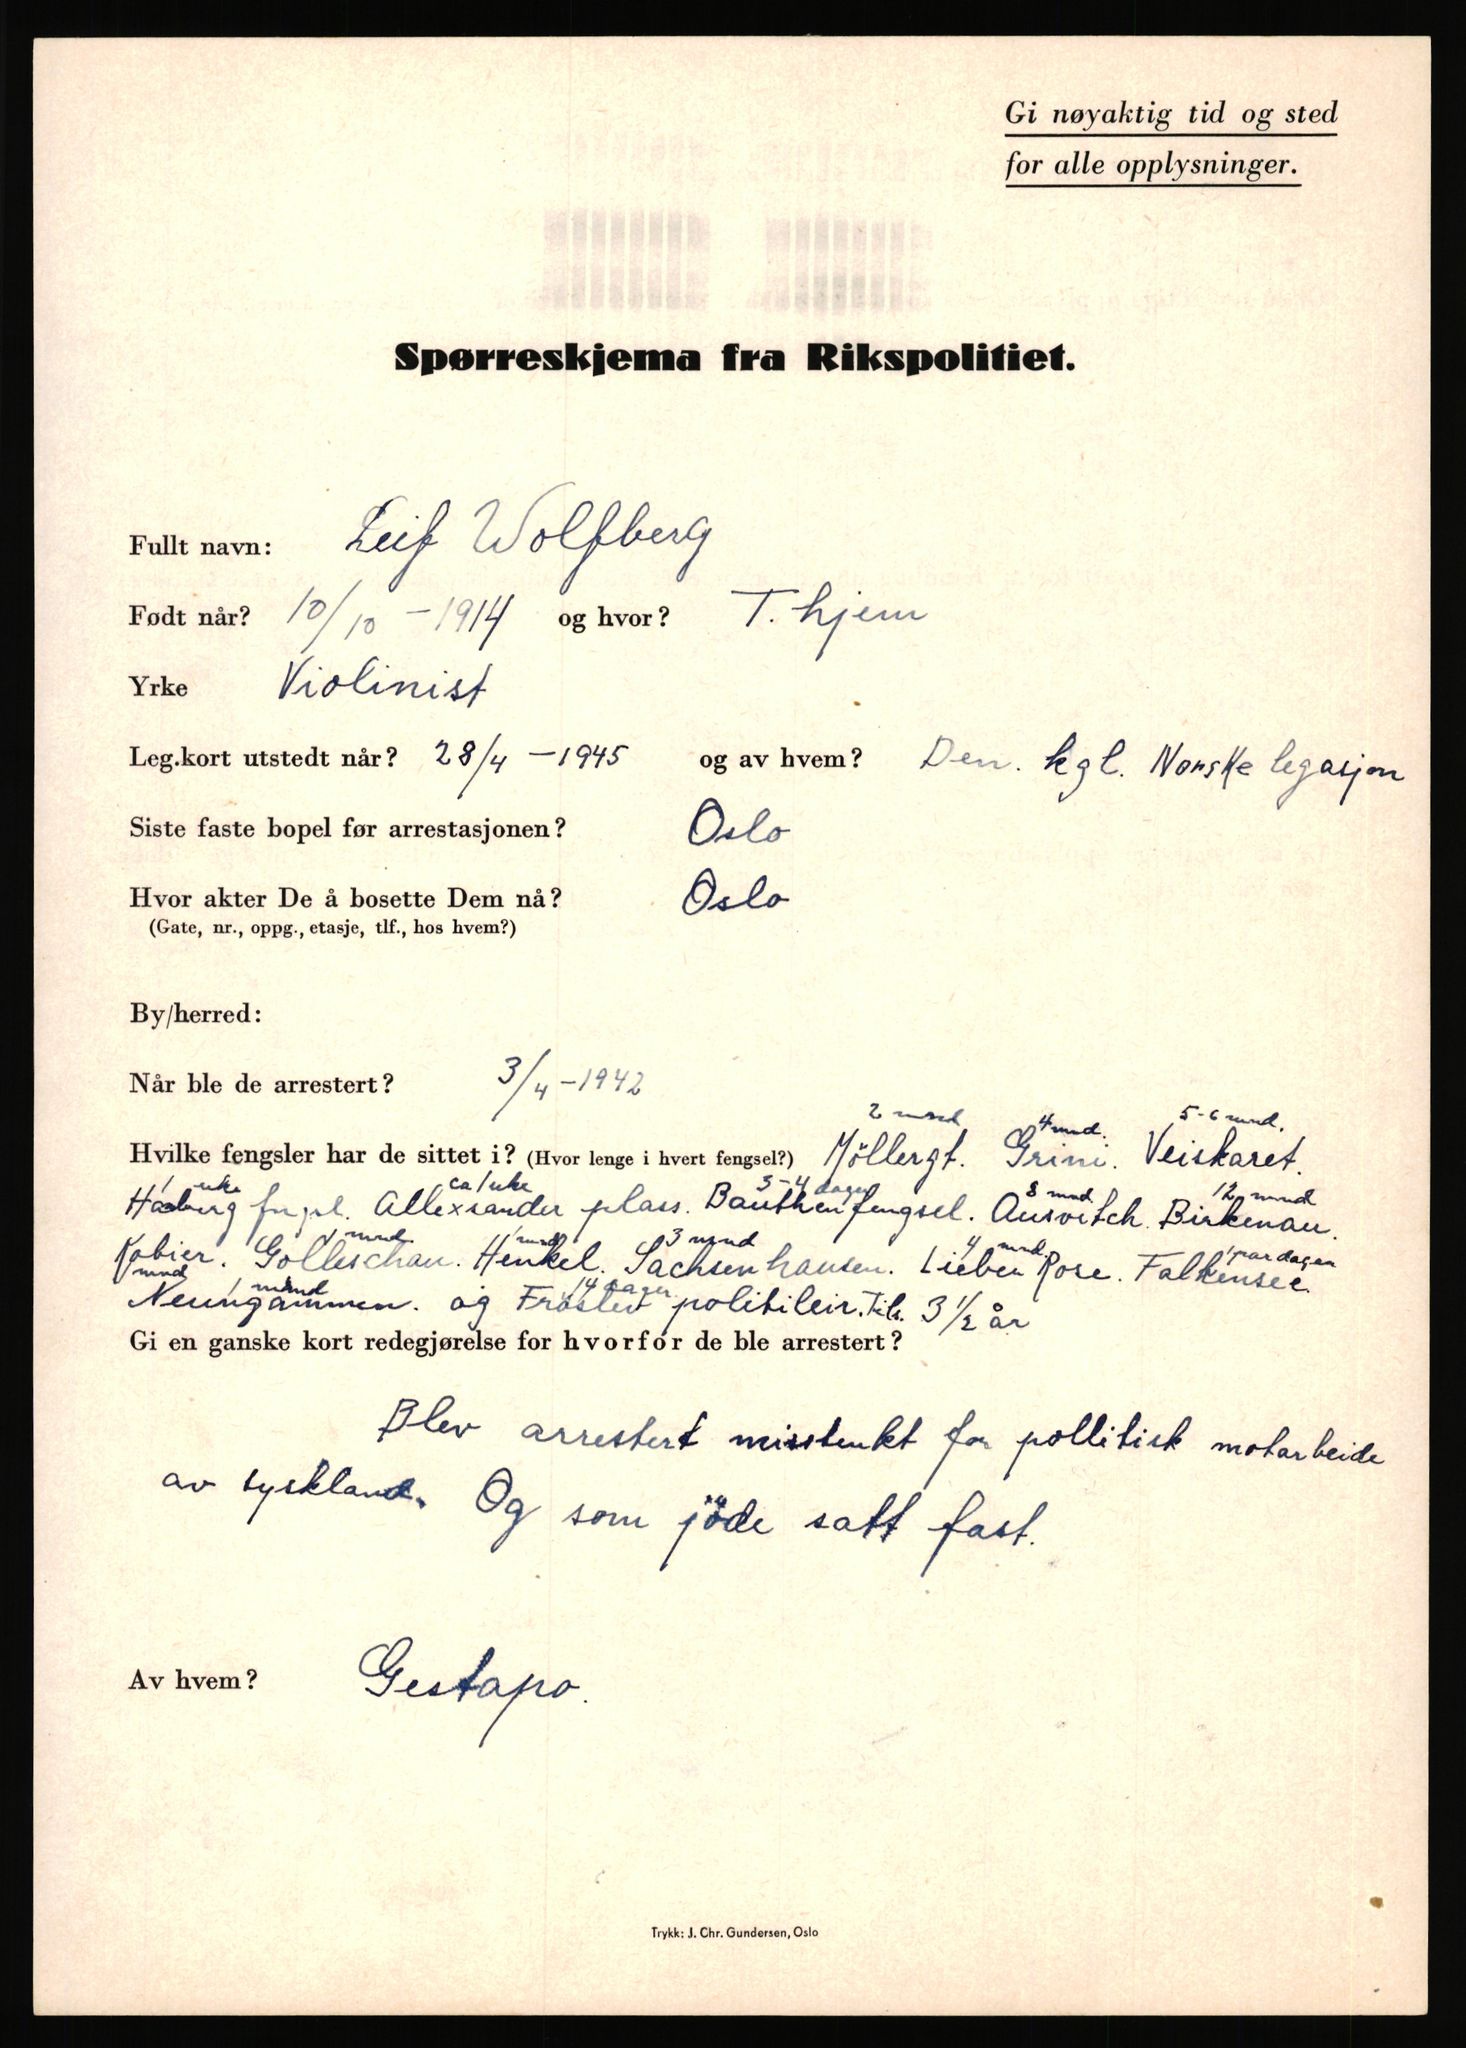 Gi nøyaktig tid og sted
for alle opplysninger.
Spørreskjema fra Rikspolitiet.
Fullt navn: Leif Wolfberg
Født når? 10/10 - 1914 og hvor? T.hjem
Yrke Violinist
Leg.kort utstedt når? 28/4 - 1945 og av hvem? Den. kgl. Norske legasjon
Siste faste bopel før arrestasjonen? Oslo
Hvor akter De å bosette Dem nå? Oslo
(Gate, nr., oppg., etasje, tlf., hos hvem?)
By/herred:
Når ble de arrestert? 3/4 - 1942
2 mnd 4 mnd. 5-6 mnd.
Hvilke fengsler har de sittet i? (Hvor lenge i hvert fengsel?) Möllergt. Grini. Veiskaret.
1 uke ca 1 uke 3-4 dager 8 mnd 12 mnd
fngsl. Allexsander plass. Bauthen fengsel. Ausvitch. Birkenau.
1 mnd 1 mnd 3 mnd 4 mnd. 1 par dager
Kobier. Golleschau. Henkel. Sachsenhausen. Lieben Rose. Falkensee.
mnd 1 månd 14 dager
Neungammen. og Fröslev politileir. Tils. 3 1/2 år
Gi en ganske kort redegjørelse for hvorfor de ble arrestert?
Blev arrestert misstenkt for pollitisk motarbeide
av tyskland. Og som jöde satt fast.
Av hvem? Gestapo.
Trykk: J. Chr. Gundersen, Oslo